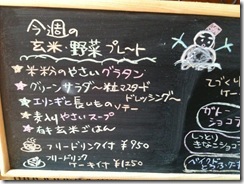 今週の
玄米・野菜プレート
★米粉のやさいグラタン
★グリーンサラダ〜粒マスタード
ドレッシング〜
★エリンギと長いものソテー
★麦入りやさいスープ
★玄米ごはん
フリードリンク付 ¥950
フリードリンク
ケーキ付 ¥1250
てづくり
ケー
ガトー
ショコラ
しっとり
きなこショコラ
ベイクド